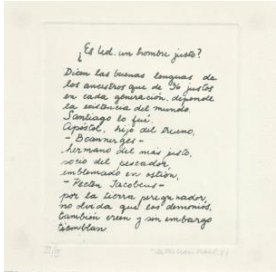 ¿Es Ud. un hombre justo?
Dicen las buenas lenguas de
los ancestros que de 36 justos
en cada generación, depende
la existencia del mundo.
Santiago lo fué.
Apóstol, hijo del trueno,
- Boannerges -
hermano del más justo,
socio del pescador,
emblemado en ostión,
- Pecten Jacobeus -
por la tierra peregrinador,
no olvida que los demonios,
también creen y sin embargo
tiemblan